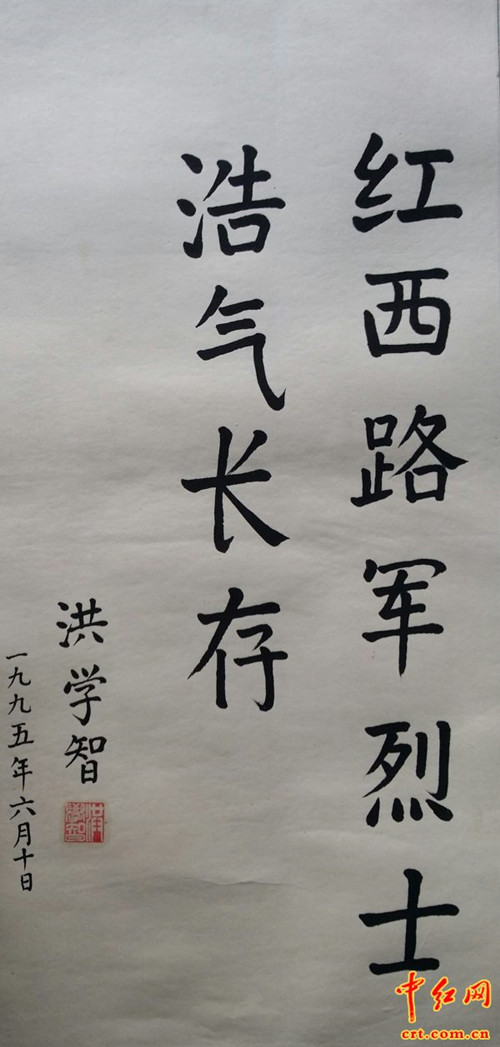 红西路军烈士
浩气长存
洪学智
一九九五年六月十日
中红网
crt.com.cn